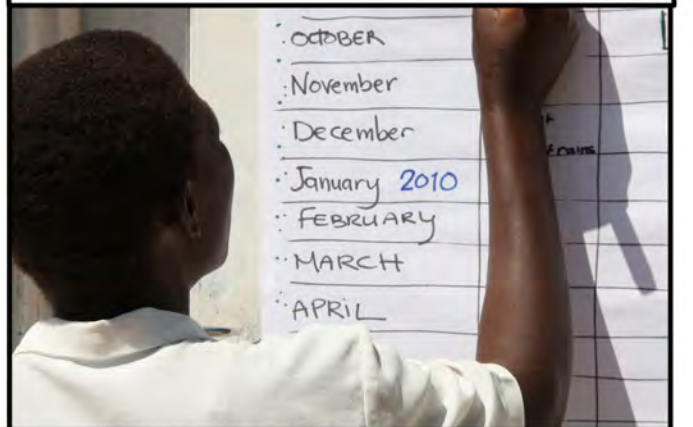 OCTOBER
November
December
January 2010
FEBRUARY
MARCH
APRIL
rains